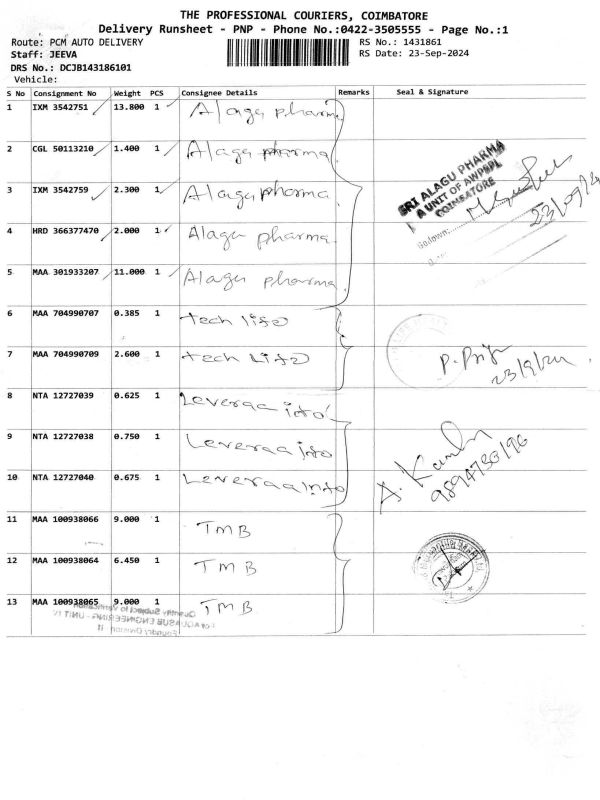 THE PROFESSIONAL COURIERS, COIMBATORE
Delivery Runsheet - PNP - Phone No.:0422-3505555 - Page No.:1
Route: PCM AUTO DELIVERY RS No.: 1431861
Staff: JEEVA RS Date: 23-Sep-2024
DRS No.: DCJB143186101
Vehicle:
S No Consignment No Weight PCS Consignee Details Remarks Seal & Signature
1 IXM 3542751 13.800 1 Alagu pharma
2 CGL 50113210 1.400 1 Alagu pharma
3 IXM 3542759 2.300 1 Alagu pharma
4 HRD 366377470 2.000 1 Alagu pharma
5 MAA 301933207 11.000 1 Alagu pharma
SRI ALAGU PHARMA
A UNIT OF AWPBPL
COIMBATORE
Godown:
23/09/24
6 MAA 704990707 0.385 1 tech life
7 MAA 704990709 2.600 1 tech Life
P. Priya
23/9/24
8 NTA 12727039 0.625 1 Leveraa info
9 NTA 12727038 0.750 1 Leveraa info
10 NTA 12727040 0.675 1 Leveraa info
A. Kamb
9894730196
11 MAA 100938066 9.000 1 TMB
12 MAA 100938064 6.450 1 TMB
13 MAA 100938065 9.000 1 TMB
Quantity Subject to Verification
For AQUASUB ENGINEERING - UNIT IV
Foundry Division II